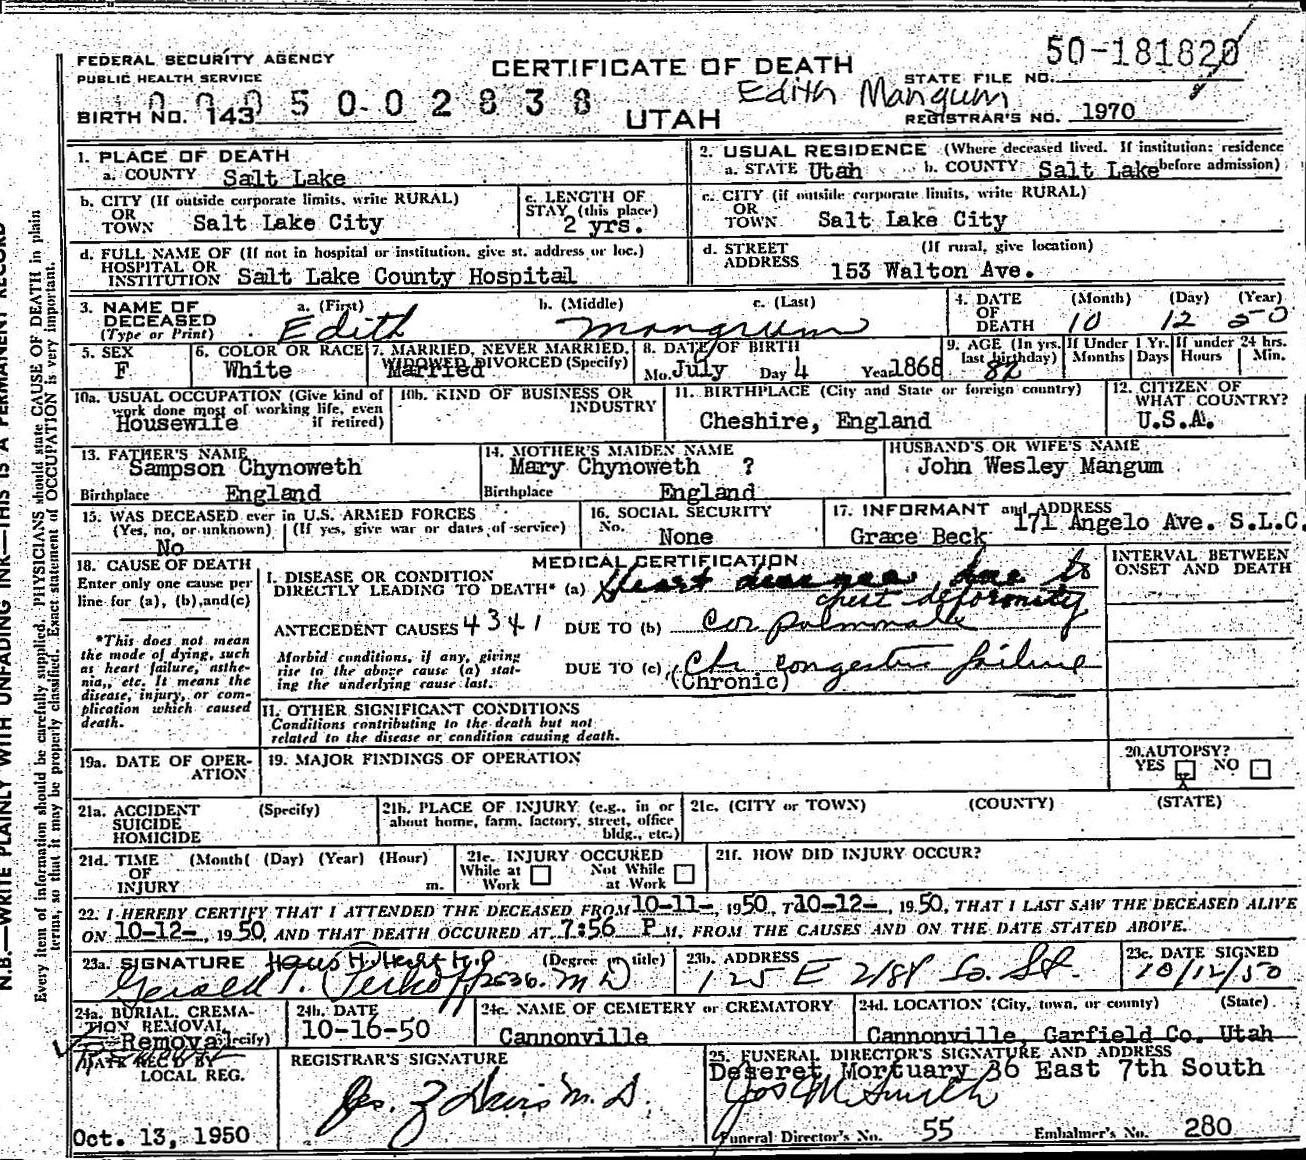 50-181820
FEDERAL SECURITY AGENCY
PUBLIC HEALTH SERVICE
CERTIFICATE OF DEATH
STATE FILE NO.
0005002838
Edith Mangum
BIRTH NO. 143
UTAH
REGISTRAR'S NO. 1970
1. PLACE OF DEATH
a. COUNTY Salt Lake
2. USUAL RESIDENCE (Where deceased lived. If institution: residence before admission)
a. STATE Utah b. COUNTY Salt Lake
b. CITY (If outside corporate limits, write RURAL)
OR
TOWN Salt Lake City
c. LENGTH OF
STAY (this place)
2 yrs.
c. CITY (if outside corporate limits, write RURAL)
OR
TOWN Salt Lake City
d. FULL NAME OF (If not in hospital or institution, give st. address or loc.)
HOSPITAL OR
INSTITUTION Salt Lake County Hospital
d. STREET (If rural, give location)
ADDRESS 153 Walton Ave.
3. NAME OF DECEASED
(Type or Print)
a. (First) b. (Middle) c. (Last)
Edith Mangrum
4. DATE OF DEATH (Month) (Day) (Year)
10 12 50
5. SEX
F
6. COLOR OR RACE
White
7. MARRIED, NEVER MARRIED,
WIDOWED, DIVORCED (Specify)
Married
8. DATE OF BIRTH
Mo. July Day 4 Year 1868
9. AGE (In yrs. last birthday)
82
If Under 1 Yr.
Months Days
If under 24 hrs.
Hours Min.
10a. USUAL OCCUPATION (Give kind of
work done most of working life, even
if retired)
Housewife
10b. KIND OF BUSINESS OR
INDUSTRY
11. BIRTHPLACE (City and State or foreign country)
Cheshire, England
12. CITIZEN OF
WHAT COUNTRY?
U.S.A.
13. FATHER'S NAME
Sampson Chynoweth
Birthplace England
14. MOTHER'S MAIDEN NAME
Mary Chynoweth ?
Birthplace England
HUSBAND'S OR WIFE'S NAME
John Wesley Mangum
15. WAS DECEASED ever in U.S. ARMED FORCES
(Yes, no, or unknown) (If yes, give war or dates of service)
No
16. SOCIAL SECURITY
No. None
17. INFORMANT and ADDRESS
171 Angelo Ave. S.L.C.
Grace Beck
18. CAUSE OF DEATH
Enter only one cause per
line for (a), (b), and (c)
*This does not mean
the mode of dying, such
as heart failure, asthe-
nia, etc. It means the
disease, injury, or com-
plication which caused
death.
MEDICAL CERTIFICATION
I. DISEASE OR CONDITION
DIRECTLY LEADING TO DEATH* (a) Heart disease, due to
chest deformity
ANTECEDENT CAUSES 4341 DUE TO (b) Cor pulmonale
Morbid conditions, if any, giving
rise to the above cause (a) stat-
ing the underlying cause last.
DUE TO (c) Chr congestive failure
(Chronic)
INTERVAL BETWEEN
ONSET AND DEATH
II. OTHER SIGNIFICANT CONDITIONS
Conditions contributing to the death but not
related to the disease or condition causing death.
19a. DATE OF OPER-
ATION
19. MAJOR FINDINGS OF OPERATION
20. AUTOPSY?
YES NO
X
21a. ACCIDENT (Specify)
SUICIDE
HOMICIDE
21b. PLACE OF INJURY (e.g., in or
about home, farm, factory, street, office
bldg., etc.)
21c. (CITY or TOWN) (COUNTY) (STATE)
21d. TIME (Month( (Day) (Year) (Hour)
OF
INJURY m.
21e. INJURY OCCURED
While at Work Not While at Work
21f. HOW DID INJURY OCCUR?
22. I HEREBY CERTIFY THAT I ATTENDED THE DECEASED FROM 10-11-, 1950, T 10-12-, 1950, THAT I LAST SAW THE DECEASED ALIVE
ON 10-12-, 1950, AND THAT DEATH OCCURED AT 7:56 P M, FROM THE CAUSES AND ON THE DATE STATED ABOVE.
23a. SIGNATURE (Degree or title)
Gerald T. Perkoff M D
23b. ADDRESS
125 E 21st So. St.
23c. DATE SIGNED
10/12/50
24a. BURIAL, CREMA-
TION REMOVAL, (Specify)
Removal
24b. DATE
10-16-50
24c. NAME OF CEMETERY or CREMATORY
Cannonville
24d. LOCATION (City, town, or county) (State)
Cannonville, Garfield Co. Utah
DATE REC'D BY
LOCAL REG.
Oct. 13, 1950
REGISTRAR'S SIGNATURE
25. FUNERAL DIRECTOR'S SIGNATURE AND ADDRESS
Deseret Mortuary 36 East 7th South
Jos M Smith
Funeral Director's No. 55 Embalmer's No. 280
N.B.—WRITE PLAINLY WITH UNFADING INK—THIS IS A PERMANENT RECORD
Every item of information should be carefully supplied. PHYSICIANS should state CAUSE OF DEATH in plain
terms, so that it may be properly classified. Exact statement of OCCUPATION is very important.